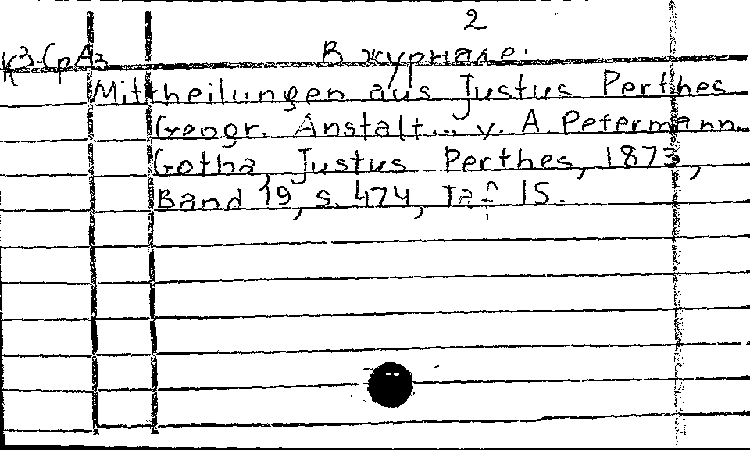 2
К3-СрАз
В журнале:
Mittheilungen aus Justus Perthes
Geogr. Anstalt... v. A. Petermann.
Gotha, Justus Perthes, 1873,
Band 19, s. 474, Taf 15.